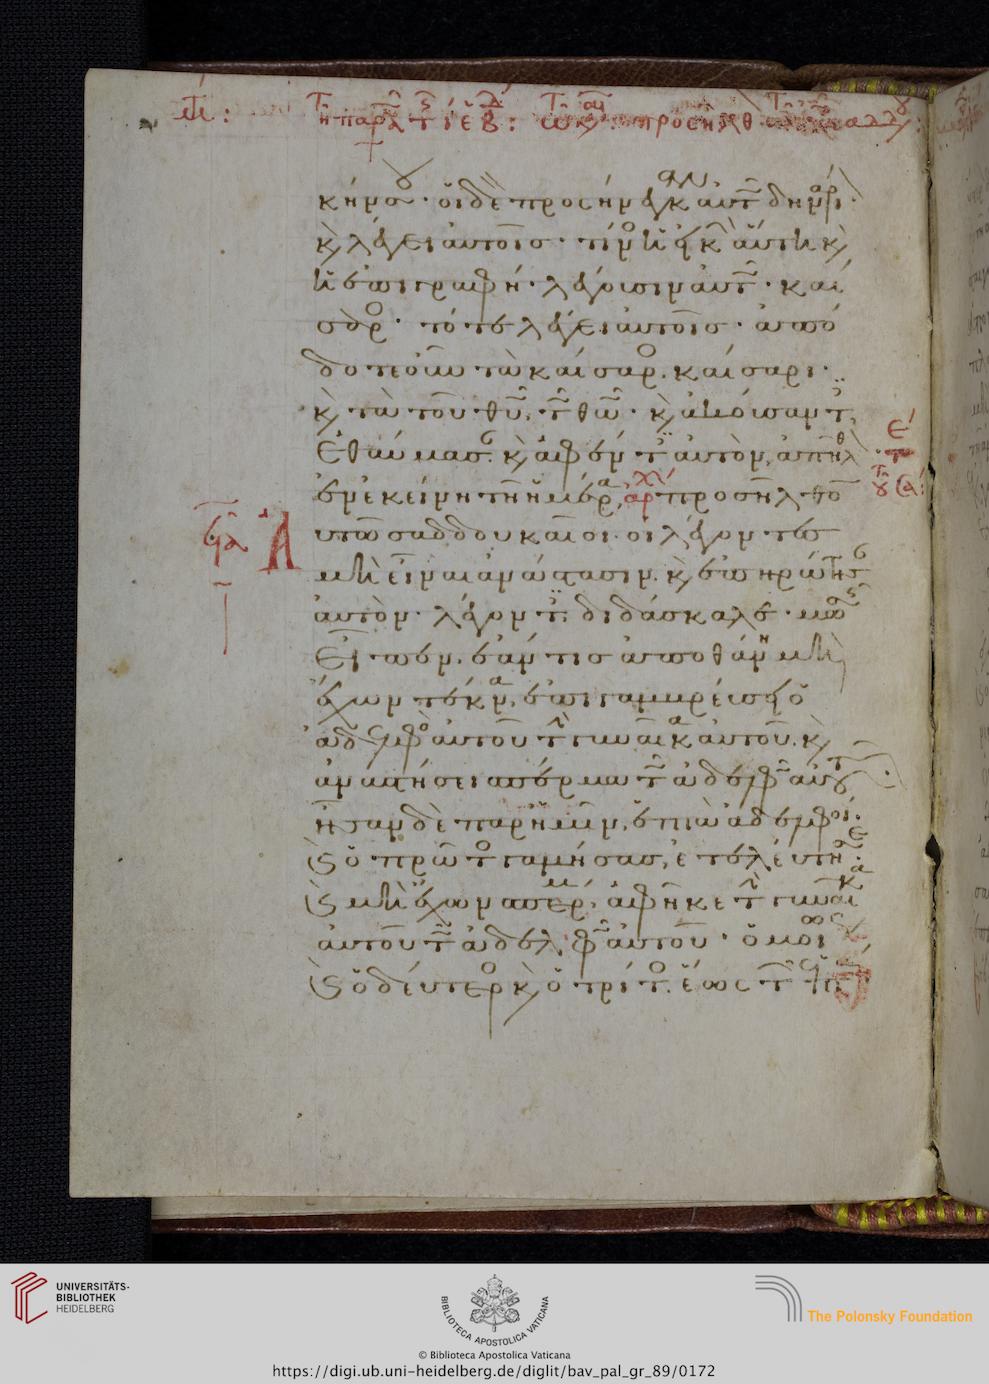 κήνσου· οἱ δὲ προσήνεγκαν αὐτῷ δηνάριον·
καὶ λέγει αὐτοῖς· τίνος ἡ εἰκὼν αὕτη καὶ
ἡ ἐπιγραφή· λέγουσιν αὐτῷ· καί
σαρος· τότε λέγει αὐτοῖς· ἀπό
δοτε οὖν τὰ καίσαρος καίσαρι·
καὶ τὰ τοῦ θυ τῷ θῶ· καὶ ἀκούσαντες
ἐθαύμασαν· καὶ ἀφέντες αὐτὸν, ἀπῆλθον
ἐν ἐκείνη τῆ ἡμέρα, προσῆλθον
αυτῶ σαδδουκαῖοι· οἱ λέγοντες
μὴ εἶναι ἀνάστασιν. καὶ ἐπηρώτησαν
αὐτὸν· λέγοντες διδάσκαλε· μωσῆς
εἶπεν, ἐάν τις ἀποθάνη μὴ
ἔχων τέκνα, ἐπιγαμβρεύσει ὁ
ἀδελφὸς αὐτοῦ τὴν γυναῖκα αὐτοῦ. καὶ
ἀναστήσει σπέρμα τῷ ἀδελφῷ αὐτοῦ
ἦσαν δὲ παρ' ἡμῖν, ἑπτὰ ἀδελφοί·
καὶ ὁ πρῶτος γαμήσας, ἐτελεύτησε
καὶ μὴ ἔχων σπέρμα, ἀφῆκε τὴν γυναῖκα
αὐτοῦ τῷ ἀδελφῷ αὐτοῦ· ὁμοίως
καὶ ὁ δεύτερος καὶ ὁ τρίτος, ἕως τῶν
UNIVERSITÄTS-
BIBLIOTHEK
HEIDELBERG
BIBLIOTECA APOSTOLICA VATICANA
The Polonsky Foundation
© Biblioteca Apostolica Vaticana
https://digi.ub.uni-heidelberg.de/diglit/bav_pal_gr_89/0172